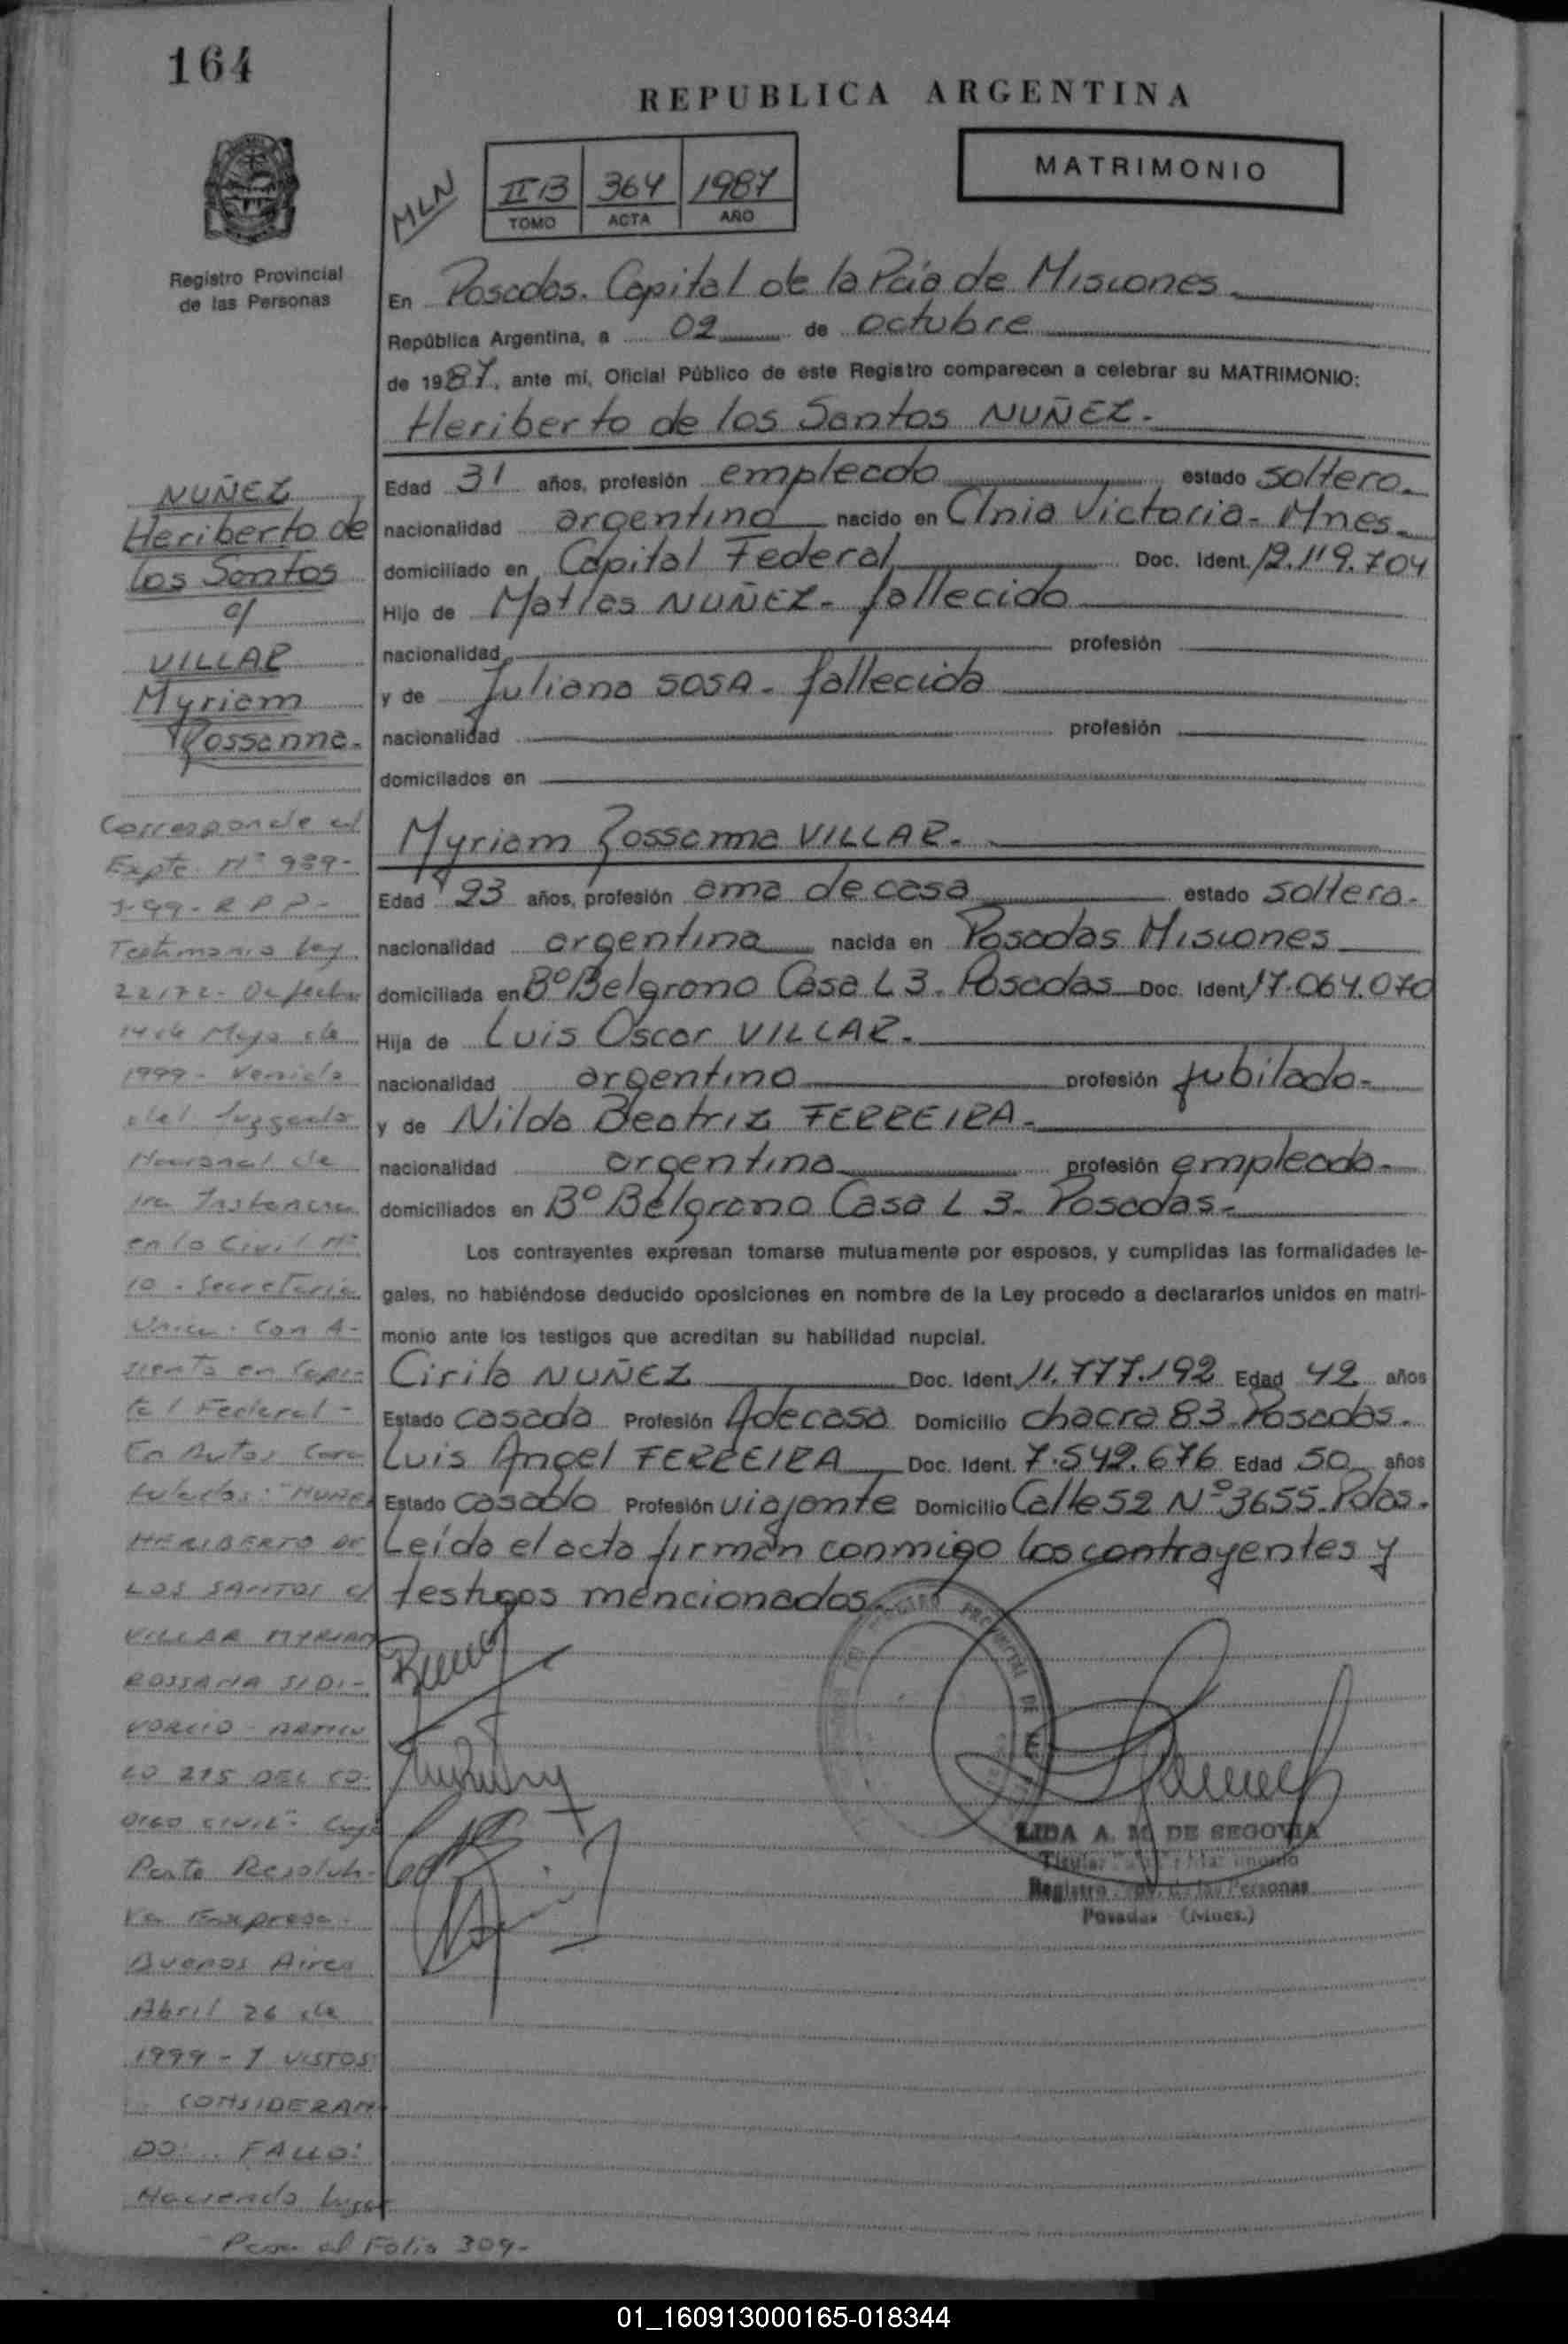 164
REPUBLICA ARGENTINA
MLN
II B 364 1987
TOMO ACTA AÑO
MATRIMONIO
Registro Provincial
de las Personas
En Posadas. Capital de la Pcia de Misiones
República Argentina, a 02 de octubre
de 1987, ante mí, Oficial Público de este Registro comparecen a celebrar su MATRIMONIO:
Heriberto de los Santos NUÑEZ.
Edad 31 años, profesión empleado estado soltero
nacionalidad argentina nacido en Clnia Victoria - Mnes
domiciliado en Capital Federal Doc. Ident. 12.119.704
Hijo de Matías NUÑEZ - fallecido
nacionalidad profesión
y de Juliana SOSA - fallecida
nacionalidad profesión
domicilados en
Myriam Rossanna VILLAR.
Edad 23 años, profesión ama de casa estado soltera.
nacionalidad argentina nacida en Posadas Misiones
domiciliada en Bº Belgrano Casa L 3. Posadas Doc. Ident. 17.064.070
Hija de Luis Oscar VILLAR.
nacionalidad argentino profesión jubilado.
y de Nilda Beatriz FERREIRA.
nacionalidad argentina profesión empleada.
domiciliados en Bº Belgrano Casa L 3. Posadas.
Los contrayentes expresan tomarse mutuamente por esposos, y cumplidas las formalidades le-
gales, no habiéndose deducido oposiciones en nombre de la Ley procedo a declararlos unidos en matri-
monio ante los testigos que acreditan su habilidad nupcial.
Cirila NUÑEZ Doc. Ident. 11.777.192 Edad 42 años
Estado casada Profesión Adecasa Domicilio chacra 83 Posadas.
Luis Angel FERREIRA Doc. Ident. 7.542.676 Edad 50 años
Estado casado Profesión viajante Domicilio Calle 52 Nº 3655. Pdas.
Leída el acta firman conmigo los contrayentes y
testigos mencionados.
LIDA A. M. DE SEGOVIA
Registro de las Personas
Posadas (Mnes.)
NUÑEZ
Heriberto de
los Santos
c/
VILLAR
Myriam
Rossanna.
Corresponde al
Expte. Nº 939-
J-99- R P P -
Testimonio Ley
22172- De fecha
14 de Mayo de
1999 - Venido
del Juzgado
Nacional de
1ra Instancia
en lo Civil Nº
10 - Secretaria
Unica - Con A-
siento en Capi-
tal Federal -
En Autos Cara
tulados: "NUÑEZ
HERIBERTO DE
LOS SANTOS C/
VILLAR MYRIAM
ROSSANA S/DI-
VORCIO - ARTICU
LO 215 DEL CO-
DIGO CIVIL" - Cuya
Parte Resoluti-
va Expresa -
Buenos Aires
Abril 26 de
1999 - Y VISTOS
CONSIDERAN
DO: .. FALLO:
Haciendo lugar
- Pasa al Folio 309 -
01_160913000165-018344